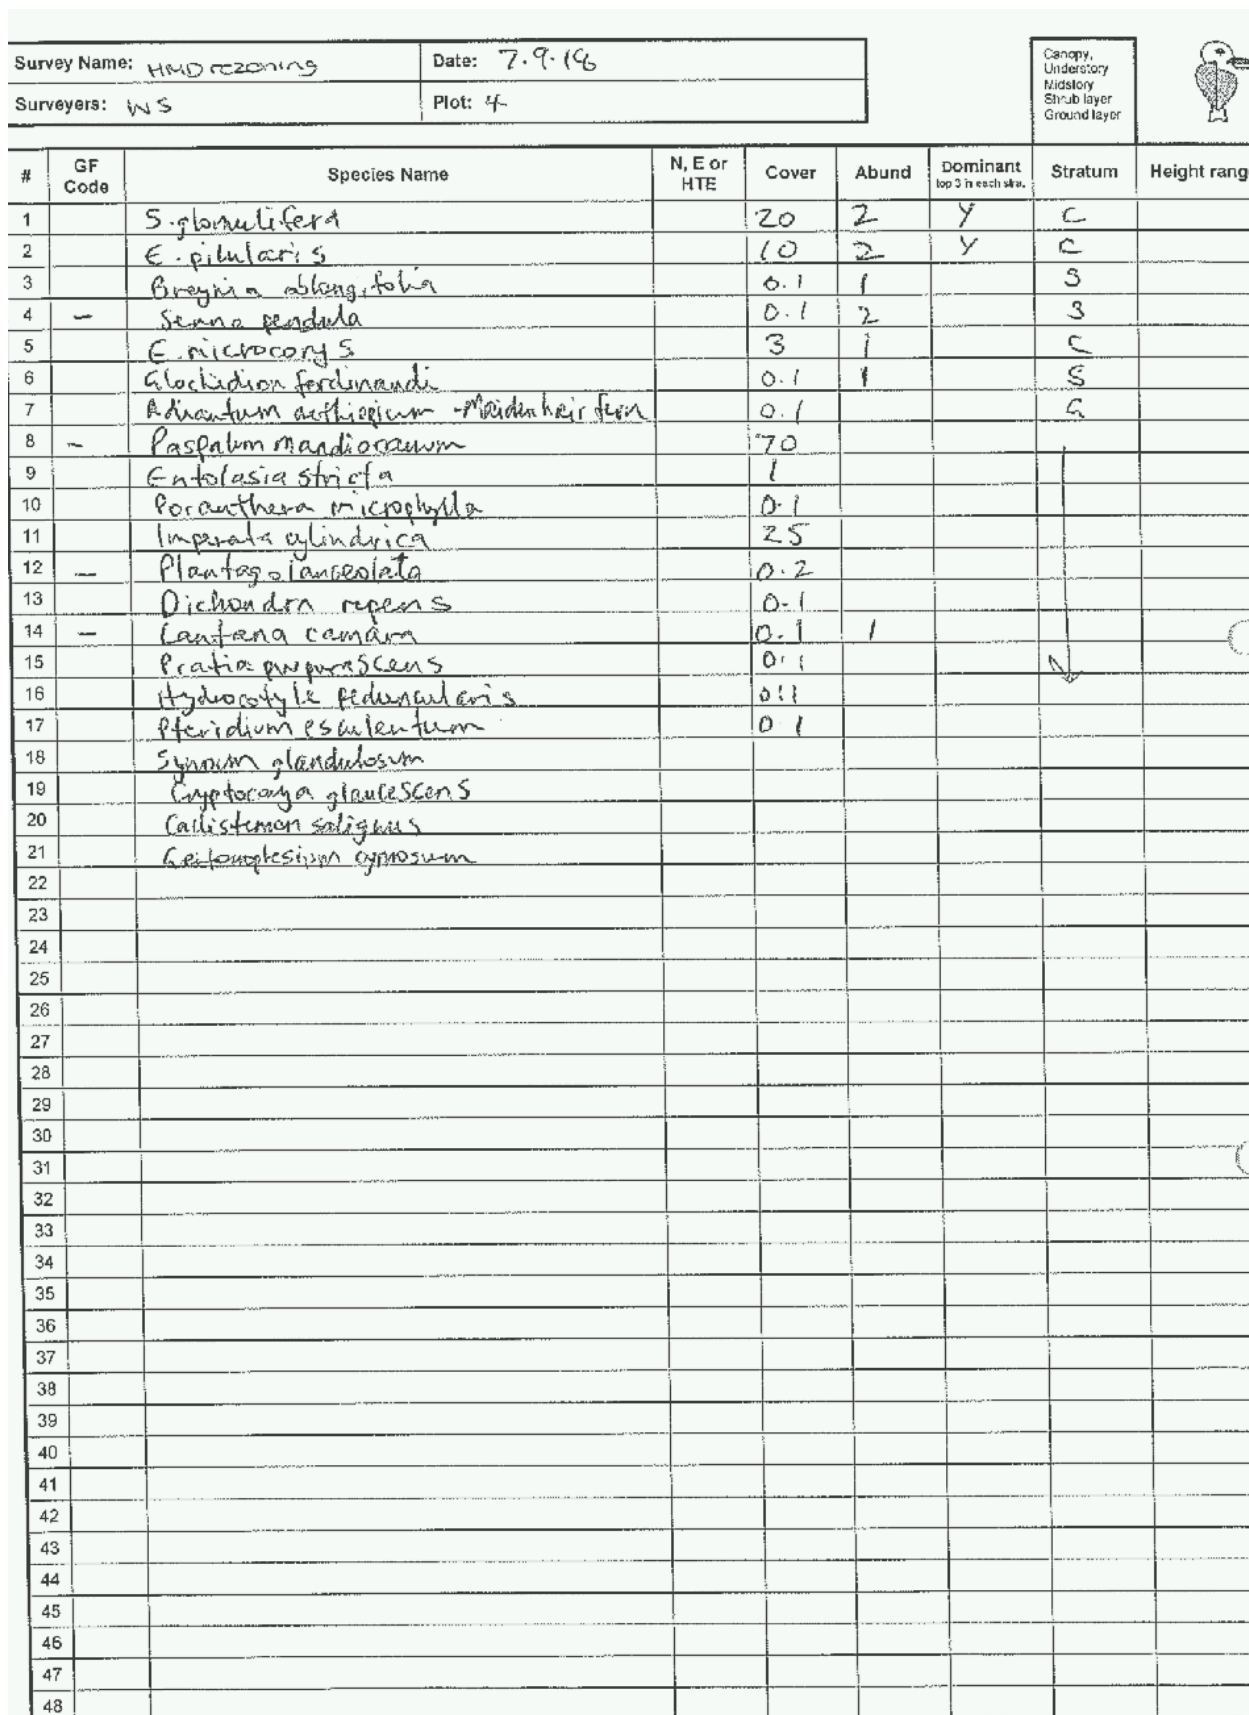 Survey Name: HMD rezoning Date: 7.9.18
Surveyers: WS Plot: 4
Canopy,
Understory
Midstory
Shrub layer
Ground layer
# GF Code Species Name N, E or HTE Cover Abund Dominant top 3 in each stra. Stratum Height rang
1 S. glomulifera 20 2 Y C
2 E. pilularis 10 2 Y C
3 Breynia oblongifolia 0.1 1 S
4 – Senna pendula 0.1 2 S
5 E. microcorys 3 1 C
6 Glochidion ferdinandi 0.1 1 S
7 Adiantum aethiopicum - Maidenhair fern 0.1 G
8 – Paspalum mandiocanum 70
9 Entolasia stricta 1
10 Poranthera microphylla 0.1
11 Imperata cylindrica 25
12 – Plantago lanceolata 0.2
13 Dichondra repens 0.1
14 – Lantana camara 0.1 1
15 Pratia purpurascens 0.1
16 Hydrocotyle peduncularis 0.1
17 Pteridium esculentum 0.1
18 Synoum glandulosum
19 Cryptocarya glaucescens
20 Callistemon salignus
21 Geitonoplesium cymosum
22
23
24
25
26
27
28
29
30
31
32
33
34
35
36
37
38
39
40
41
42
43
44
45
46
47
48